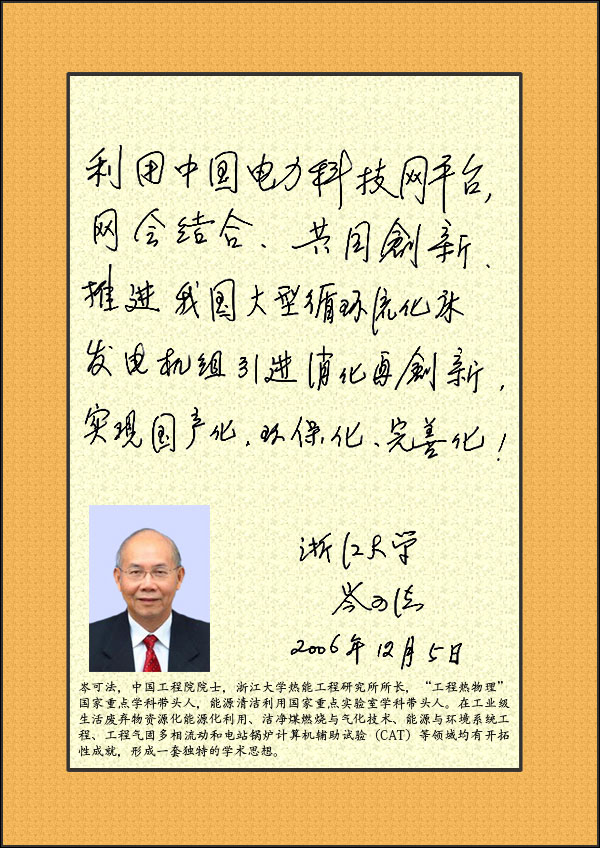 利用中国电力科技网平台,
网会结合、共同創新、
推进我国大型循环流化床
发电机组引进消化再創新,
实现国产化、环保化、完善化!
浙江大学
岑可法
2006年12月5日
岑可法，中国工程院院士，浙江大学热能工程研究所所长，“工程热物理”
国家重点学科带头人，能源清洁利用国家重点实验室学科带头人。在工业级
生活废弃物资源化能源化利用、洁净煤燃烧与气化技术、能源与环境系统工
程、工程气固多相流动和电站锅炉计算机辅助试验（CAT）等领域均有开拓
性成就，形成一套独特的学术思想。